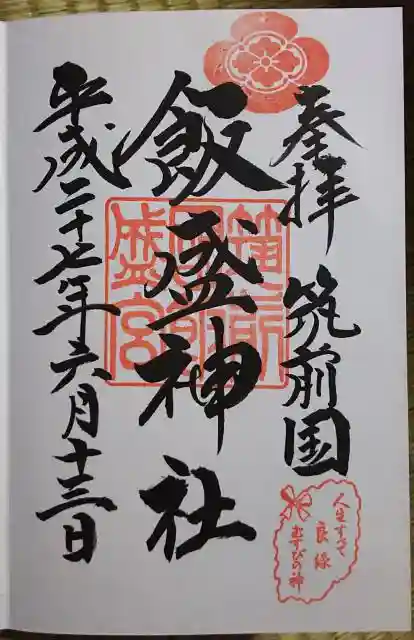 奉拝 筑前国
飯盛神社
平成二十七年六月十三日
筑前國飯盛宮
人生すべて
良縁
むすびの神